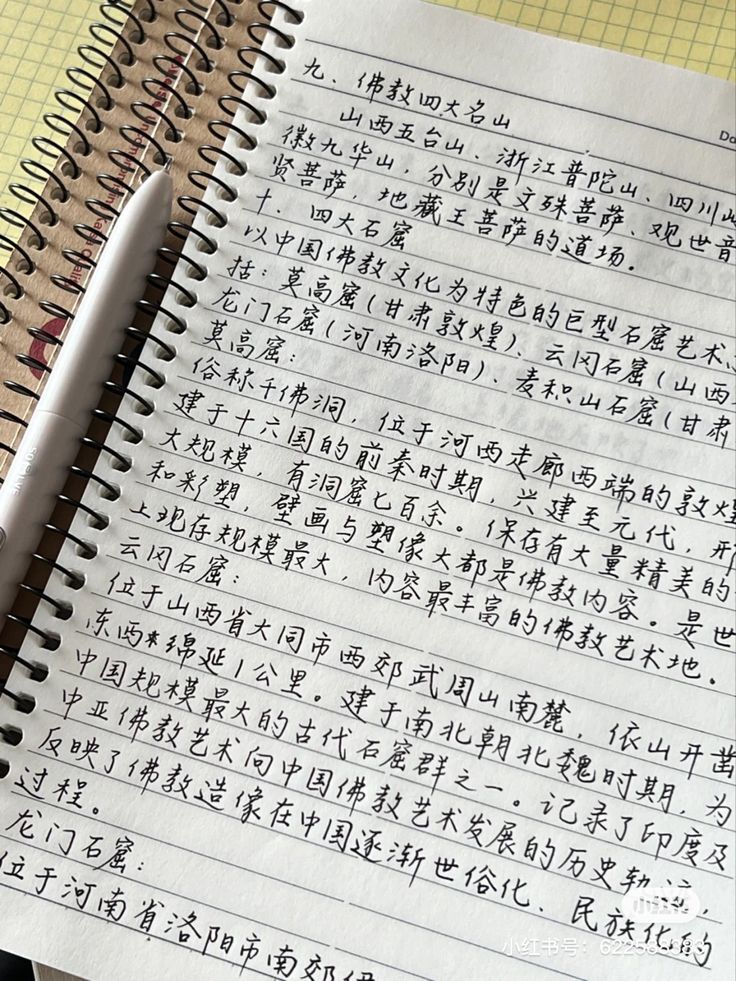 Da
九、佛教四大名山
山西五台山、浙江普陀山、四川峨
徽九华山，分别是文殊菩萨、观世音
贤菩萨，地藏王菩萨的道场。
十、四大石窟
以中国佛教文化为特色的巨型石窟艺术
括：莫高窟(甘肃敦煌)、云冈石窟(山西
龙门石窟(河南洛阳)、麦积山石窟(甘肃
莫高窟：
俗称千佛洞，位于河西走廊西端的敦煌
建于十六国的前秦时期，兴建至元代，形
大规模，有洞窟七百余。保存有大量精美的
和彩塑，壁画与塑像大都是佛教内容。是世
上现存规模最大，内容最丰富的佛教艺术地。
云冈石窟：
位于山西省大同市西郊武周山南麓，依山开凿
东西绵延1公里。建于南北朝北魏时期，为
中国规模最大的古代石窟群之一。记录了印度及
中亚佛教艺术向中国佛教艺术发展的历史轨迹，
反映了佛教造像在中国逐渐世俗化、民族化的
过程。
龙门石窟：
位于河南省洛阳市南郊伊
小红书
小红书号：